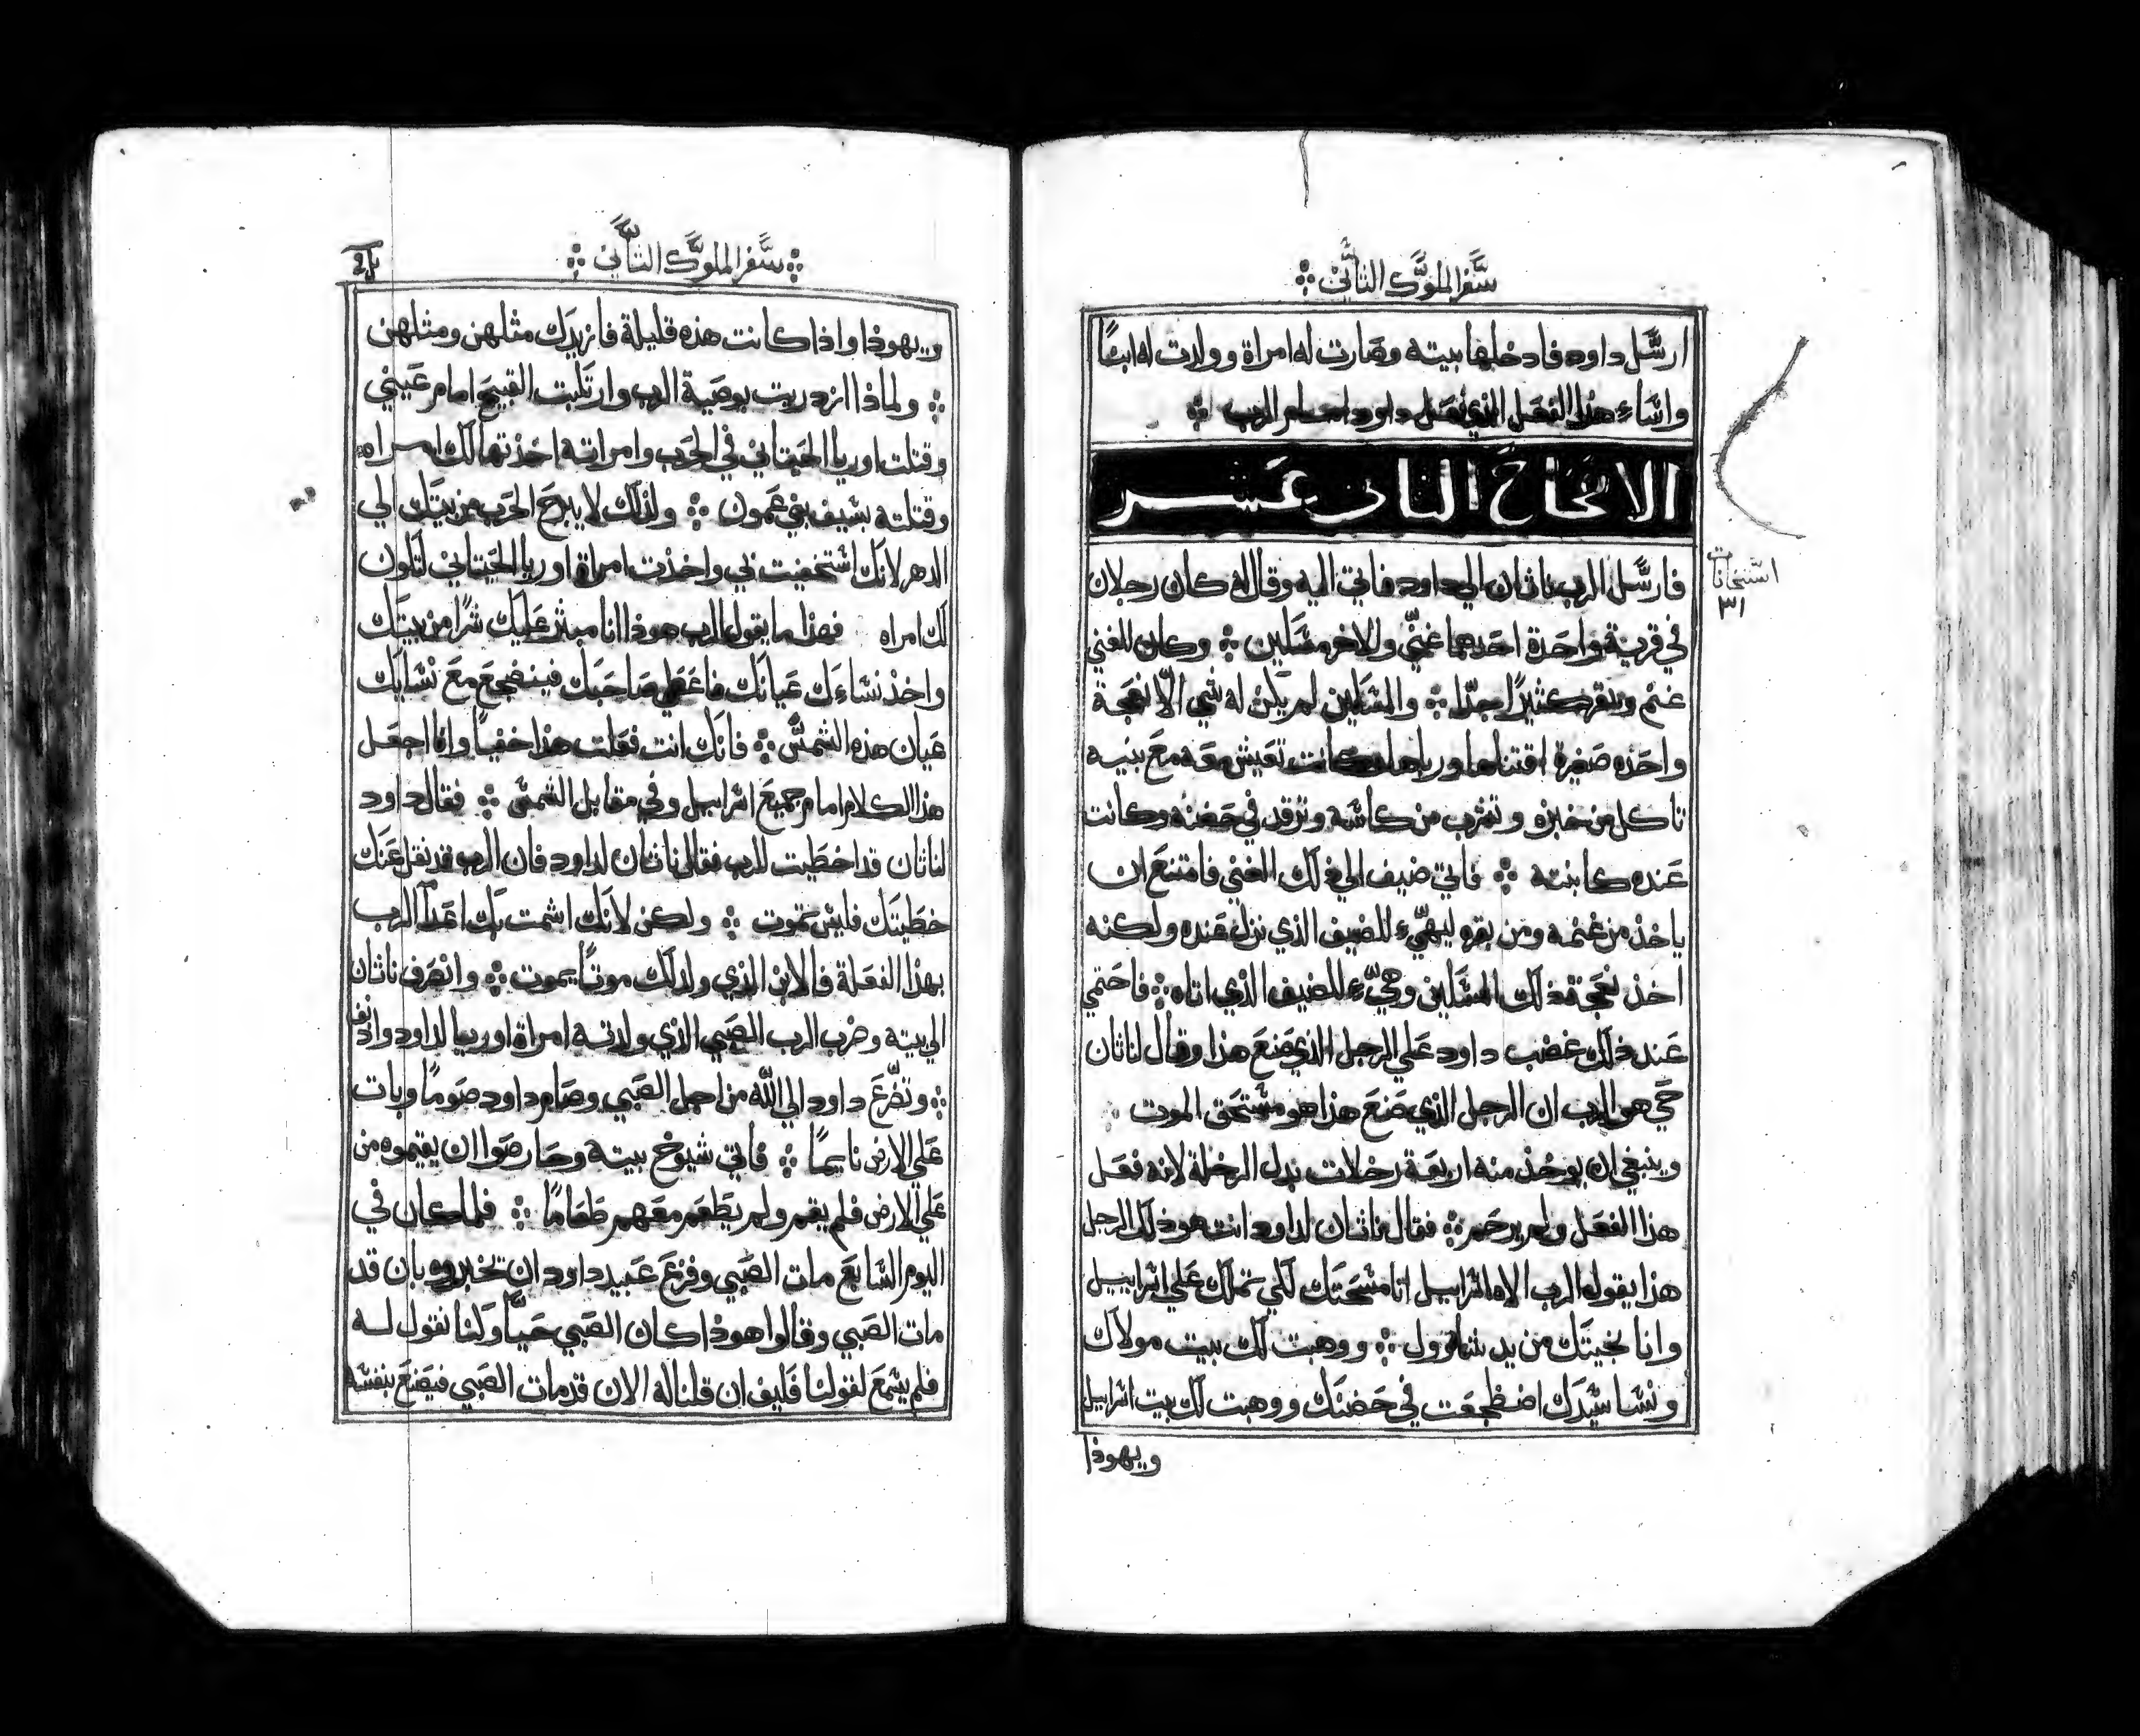 سفر الملوك الثاني
ارسل داود فادخلها بيته وصارت له امراة وولدت له ابنًا
واساء هذا الفعل الذي فعل داود امام الرب
الاصحاح الثاني عشر
فارسل الرب ناثان الي داود فاتي اليه وقال له كان رجلان
في قرية واحدة احدهما غنيّ والاخر مسكين ܀ وكان للغني
غنم وبقر كثيرًا جدًّا ܀ والمسكين لم يكن له شي الّا نعجة
واحده صغيرة اقتناها ورباها وكانت تعيش معه مع بنيه
تاكل من خبزه وتشرب من كاسه وترقد في حضنه وكانت
عنده كابنته ܀ فاتي ضيف الي ذلك الغني فامتنع ان
ياخذ من غنمه ومن بقره ليهيّء للضيف الذي نزل عنده ولكنه
اخذ نعجة ذلك المسكين وهيّء للضيف الذي اتاه ܀ فاحتمي
عند ذلك غضب داود علي الرجل الذي صنع هذا وقال لناثان
حي هو الرب ان الرجل الذي صنع هذا هو مستحق الموت
وينبغي ان يوخذ منه اربعة رخلات بدل الرخلة لانه فعل
هذا الفعل ولم يرحم ܀ فقال ناثان لداود انت هو ذلك الرجل
هذا يقوله الرب الاه اسراييل انا مسحتك لكي تملك علي اسراييل
وانا نجيتك من يد شاوول ܀ ووهبت لك بيت مولاك
ونسا سيدك اضطجعت في حضنك ووهبت لك بيت اسراييل
ويهوذا
استنجانات
٣١
܀ سفر الملوك الثاني ܀
ويهوذا واذا كانت هذه قليلة فازيدك مثلهن ومثلهن
܀ ولماذا ازدريت بوصية الرب وارتكبت القبيح امام عيني
وقتلت اوريا الحيتاني في الحرب وامراته اخذتها لك امراه
وقتلته بسيف بني عمون ܀ ولذلك لا يبرح الحرب من بيتك الي
الدهر لانك استخفيت بي واخذت امراة اوريا الحيتاني لتكون
لك امراه فهذا ما يقول الرب هوذا انا مثير عليك شرًا من بيتك
واخذ نساءك عيانك فاعطي صاحبك فينضجع مع نسايك
عيان هذه الشمس ܀ فانك انت فعلت هذا خفيًا وانا اجعل
هذا الكلام امام جميع اسراييل وفي مقابل الشمس ܀ فقال داود
لناثان قد اخطيت للرب فقال ناثان لداود فان الرب قد نقل عنك
خطيتك فليس تموت ܀ ولكن لانك اشمت بك اعدآ الرب
بهذا الفعلة فالابن الذي ولد لك موتًا يموت ܀ وانصرف ناثان
الي بيته وضرب الرب الصبي الذي ولدته امراة اوريا لداود وادنف
܀ وتضّرع داود الي اللّه من اجل الصبي وصام داود صومًا وبات
علي الارض نايمًا ܀ فاتي شيوخ بيته وحارصوا ان يقيموه من
علي الارض فلم يقم ولم يطعم معهم طعامًا ܀ فلما كان في
اليوم السابع مات الصبي وفزع عبيد داود ان تخبروه بان قد
مات الصبي وقالوا هوذا كان الصبي حيّا وكنا نقول له
فلم يسمع لقولنا فكيف ان قلنا له الان قد مات الصبي فيصنع بنفسه